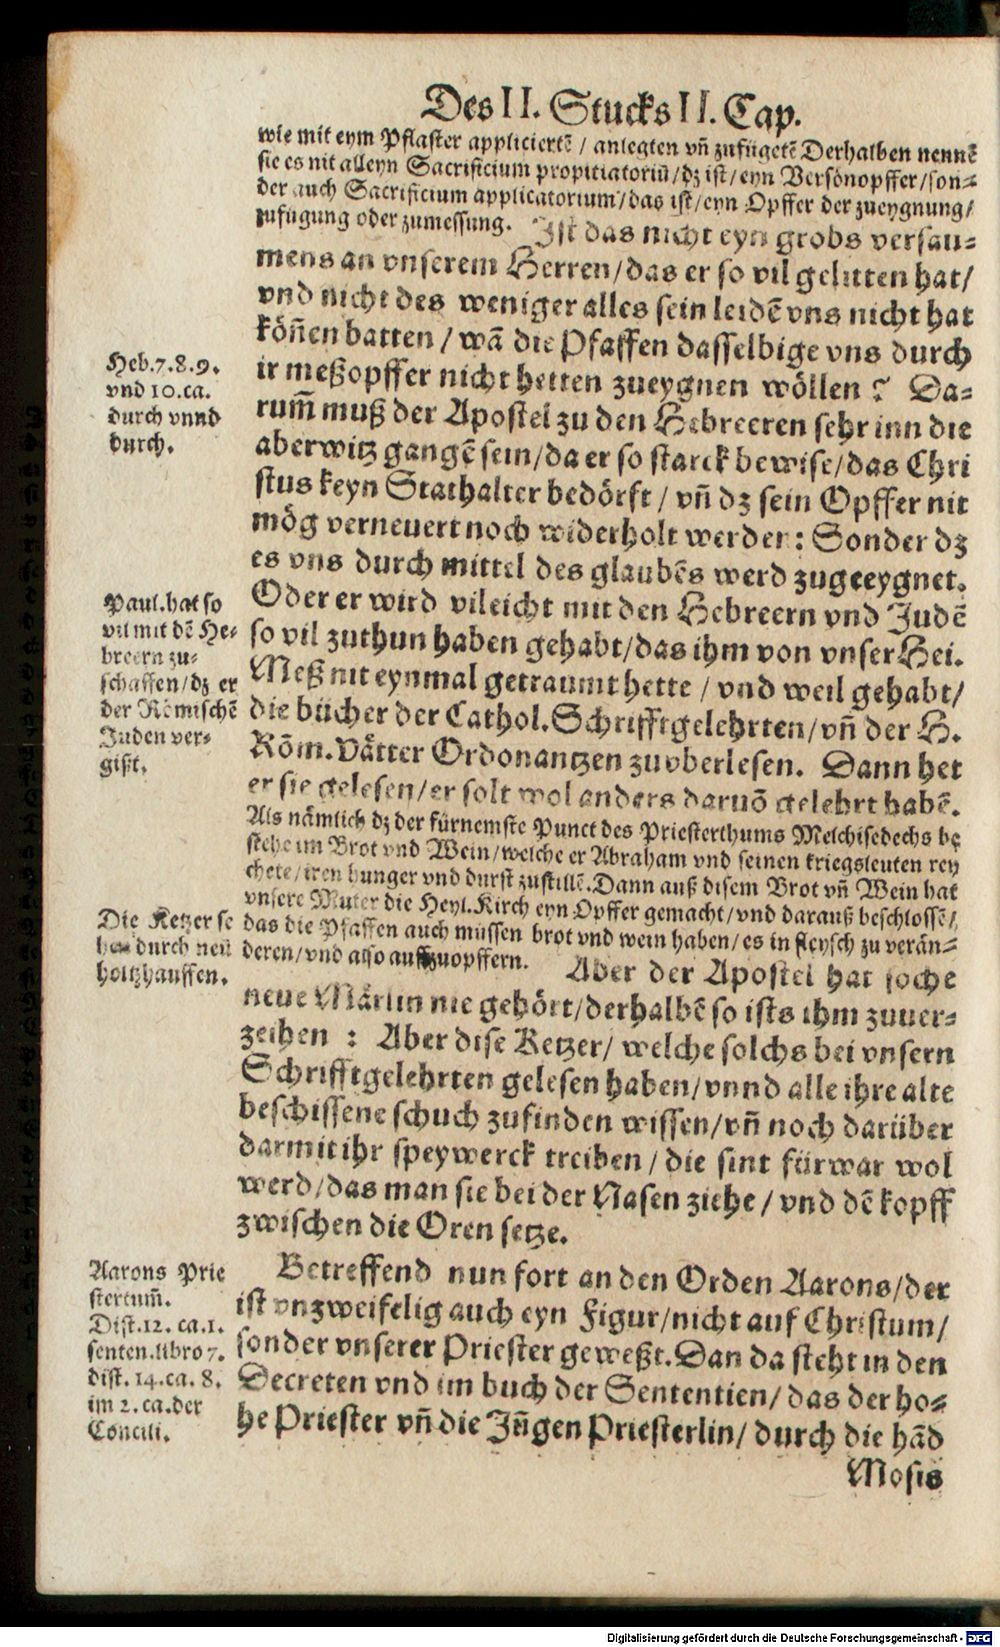 Des II. Stucks II. Cap.
wie mit eym Pflaster appliciertẽ / anlegten vñ zufügetẽ Derhalben nennẽ
sie es nit alleyn Sacrificium propitiatoriũ / dz ist / eyn Versönopffer / son⸗
der auch Sacrificium applicatorium / das ist / eyn Opffer der zueygnung /
zufügung oder zumessung. Ist das nicht eyn grobs versau⸗
mens an vnserem Herren / das er so vil gelitten hat /
vnd nicht des weniger alles sein leidẽ vns nicht hat
köñen batten / wã die Pfaffen dasselbige vns durch
ir meßopffer nicht hetten zueygnen wöllen ? Da⸗
rum̃ muß der Apostel zu den Hebreeren sehr inn die
aberwitz gangẽ sein / da er so starck bewise / das Chri
stus keyn Stathalter bedörft / vñ dz sein Opffer nit
mög verneuert noch widerholt werden : Sonder dz
es vns durch mittel des glaubẽs werd zugeeygnet.
Oder er wird vileicht mit den Hebreern vnd Judẽ
so vil zuthun haben gehabt / das ihm von vnser Hei.
Meß nit eynmal getraumt hette / vnd weil gehabt /
die bücher der Cathol. Schrifftgelehrten / vñ der H.
Röm. Vätter Ordonantzen zuvberlesen. Dann het
er sie gelesen / er solt wol anders daruõ gelehrt habẽ.
Als nämlich dz der fürnemste Punct des Priesterthums Melchisedechs be
stehe im Brot vnd Wein / welche er Abraham vnd seinen kriegsleuten rey
chete / iren hunger vnd durst zustillẽ. Dann auß disem Brot vñ Wein hat
vnsere Muter die Heyl. Kirch eyn Opffer gemacht / vnd darauß beschlossẽ /
das die Pfaffen auch müssen brot vnd wein haben / es in fleysch zu verän⸗
deren / vnd also auffzuopffern. Aber der Apostel hat soche
neue Märlin nie gehört / derhalbẽ so ists ihm zuuer⸗
zeihen : Aber dise Ketzer / welche solchs bei vnsern
Schrifftgelehrten gelesen haben / vnnd alle ihre alte
beschissene schuch zufinden wissen / vñ noch darüber
darmit ihr speywerck treiben / die sint fürwar wol
werd / das man sie bei der Nasen ziehe / vnd dẽ kopff
zwischen die Oren setze.
Betreffend nun fort an den Orden Aarons / der
ist vnzweifelig auch eyn Figur / nicht auf Christum /
sonder vnserer Priester geweßt. Dan da steht in den
Decreten vnd im buch der Sententien / das der ho⸗
he Priester vñ die Jũgen Priesterlin / durch die hãd
Mosis
Heb. 7. 8. 9.
vnd 10. ca.
durch vnnd
durch.
Paul. hat so
vil mit dẽ He⸗
breern zu⸗
schaffen / dz er
der Römischẽ
Juden ver⸗
gißt.
Die Ketzer se
hen durch neũ
holtzhauffen.
Aarons Prie
stertum̃.
Dist. 12. ca. 1.
senten. libro 7.
dist. 14. ca. 8.
im 2. ca. der
Concili.
Digitalisierung gefördert durch die Deutsche Forschungsgemeinschaft - DFG